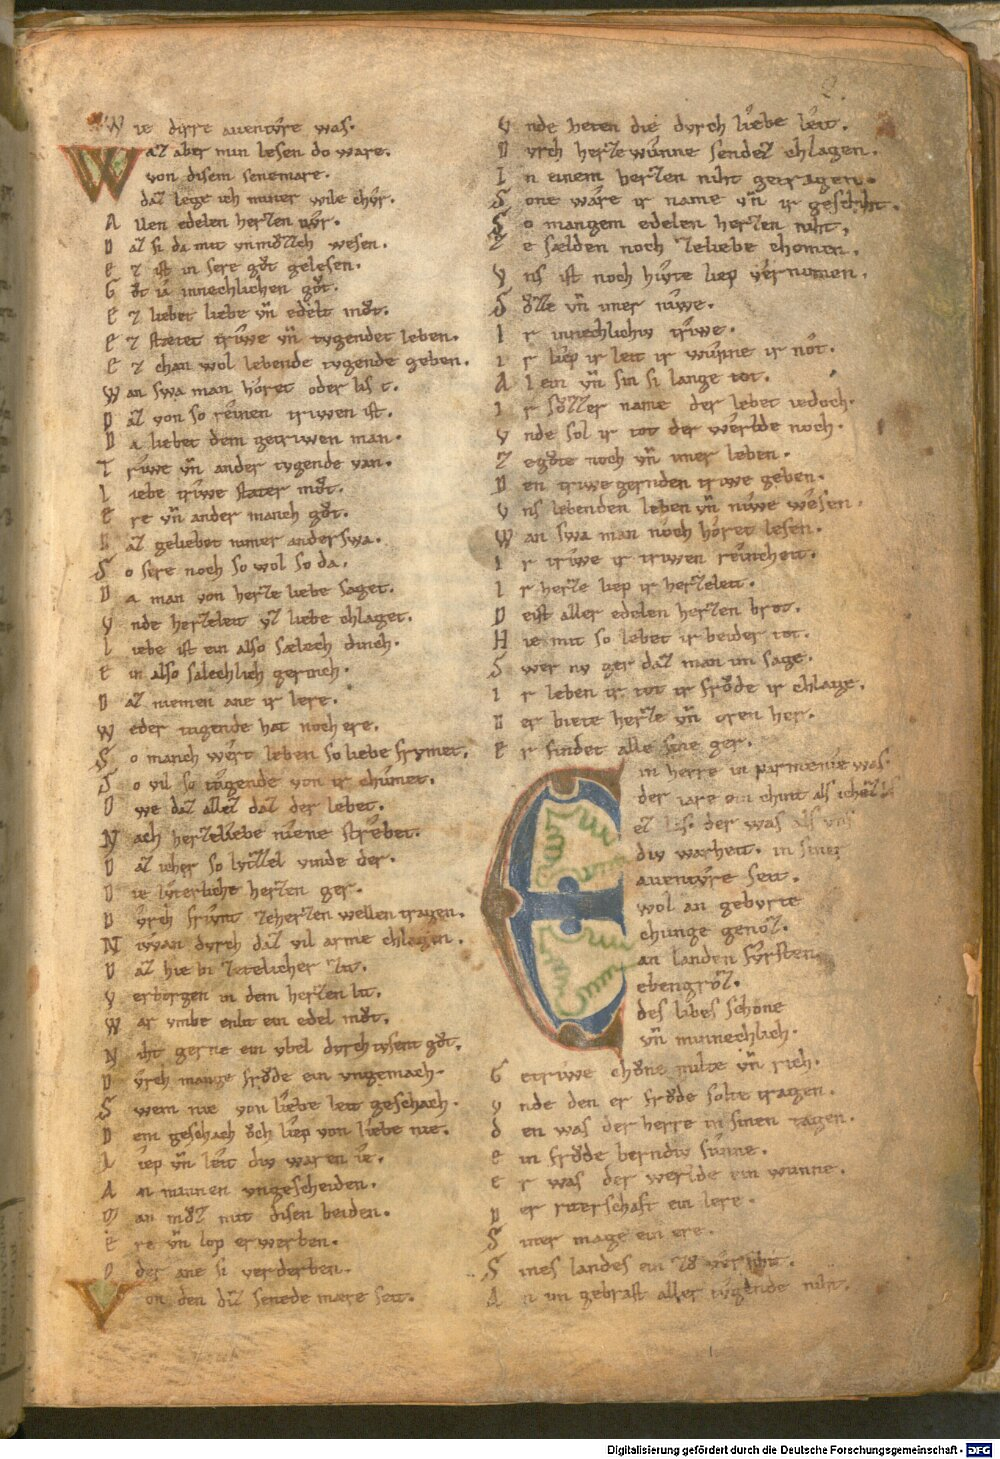 2.
W ie dirre auentv̂re was.
Waz aber min lesen do ware.
von disem senemare.
daz lege ich miner wile chv̂r.
A llen edelen herzen vv̂r.
D az si da mit vnmv̊zzch wesen.
E z ist in sere gv̊t gelesen.
G v̊t ia innechlichen gv̊t.
E z liebet liebe vn̄ edelt mv̊t.
E z stætet triwe vn̄ tvgendet leben.
E z chan wol lebende tvgende geben.
W an swa man hôret oder lis t.
D az von so reinen triwen ist.
D a liebet dem getriwen man.
T riwe vn̄ ander tvgende van.
L iebe triwe stater mv̊t.
E re vn̄ ander manch gv̊t.
D az geliebet nimer anderswa.
S o sere noch so wol so da.
D a man von herze liebe saget.
V nde herzeleit vz liebe chlaget.
L iebe ist ein also sælech dinch.
E in also salechlich gerinch.
D az niemen ane ir lere.
W eder tugende hat noch ere.
S o manch wert leben so liebe frvmet.
S o vil so tugende von ir chumet.
O we daz allez daz der lebet.
N ach herzeliebe niene strebet.
D az icher so lvzzel vinde der.
D ie lvterliche herzen ger.
D vrch frivnt zeherzen wellen tragen.
N iwan dvrch daz vil arme chlagen.
D az hie bi zetelicher zit.
V erborgen in dem herzen lit.
W ar vmbe enlit ein edel mv̊t.
N iht gerne ein vbel dvrch tvsent gv̊t.
D vrch mange frv̊de ein vngemach.
S wem nie von liebe leit geschach.
D em geschach o̊ch liep von liebe nie.
L iep vn̄ leit div waren ie.
A n minnen vngescheiden.
M an mv̊z mit disen beiden.
E re vn̄ lop erwerben.
O der ane si verderben.
Von den diz senede mære seit.
V nde heten die dvrch liebe leit.
D vrch herze wunne sendez chlagen.
I n einem herzen niht getragen.
S one wâre ir name vn̄ ir geschiht.
S o mangem edelen herzen niht.
Z e sælden noch zeliebe chomen.
V ns ist noch hivte liep vernomen.
S v̊zze vn̄ imer niwe.
I r innechlichiv triwe.
I r liep ir leit ir wunne ir not.
A l ein vn̄ sin si lange tot.
I r sv̊zzer name der lebet iedoch.
V nde sol ir tot der werlde noch.
Z egv̊te noch vn̄ imer leben.
D en triwe gernden triwe geben.
V ns lebenden leben vn̄ niwe wesen.
W an swa man noch hôret lesen.
I r triwe ir triwen reincheit.
I r herze liep ir herzeleit.
D eist aller edelen herzen brot.
H ie mit so lebet ir beider tot.
S wer nv ger daz man im sage.
I r leben ir tot ir frv̊de ir chlage.
D er biete herze vn̄ oren her.
E r findet alle sine ger.
Ein herre in parmenie was.
der iare ein chint als ichez
las. der was als vns
div warheit. in siner
auentvre seit.
wol an gebvrte
chunge genôz.
an landen fvrsten
ebengrôz.
des libes schone
vn̄ minnechlich.
G etriwe chône milte vn̄ rich.
V nde den er frv̊de solte tragen.
D en was der herre in sinen tagen.
E in frv̊de berndiv sunne.
E r was der werlde ein wunne.
D er riterschaft ein lere.
S iner mage ein ere.
S ines landes ein zv̊versiht.
A n im gebrast aller tvgende niht.
Digitalisierung gefördert durch die Deutsche Forschungsgemeinschaft - DFG